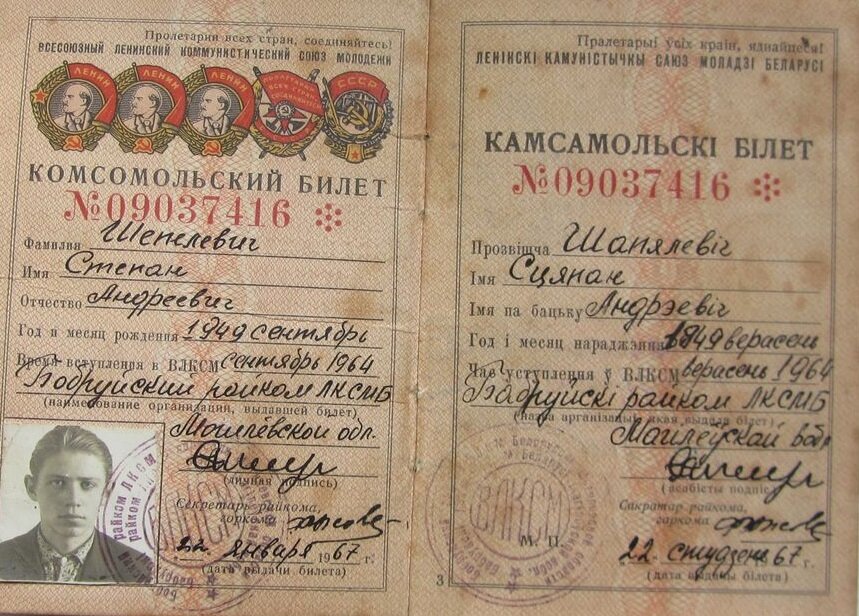 Пролетарии всех стран, соединяйтесь!
ВСЕСОЮЗНЫЙ ЛЕНИНСКИЙ КОММУНИСТИЧЕСКИЙ СОЮЗ МОЛОДЕЖИ
ЛЕНИН
ЛЕНИН
ЛЕНИН
ПРОЛЕТАРИИ ВСЕХ СТРАН СОЕДИНЯЙТЕСЬ
СССР
КОМСОМОЛЬСКИЙ БИЛЕТ
№09037416
Фамилия Шепелевич
Имя Степан
Отчество Андреевич
Год и месяц рождения 1949 сентябрь
Время вступления в ВЛКСМ сентябрь 1964
Бобруйский райком ЛКСМБ
(наименование организации, выдавшей билет)
Могилевской обл.
(личная подпись)
Секретарь райкома,
горкома
22 января 1967 г.
(дата выдачи билета)
райком ЛКСМ
Пралетарыі ўсіх краін, яднайцеся!
ЛЕНІНСКІ КАМУНІСТЫЧНЫ САЮЗ МОЛАДЗІ БЕЛАРУСІ
КАМСАМОЛЬСКІ БІЛЕТ
№09037416
Прозвішча Шапялевіч
Імя Сцяпан
Імя па бацьку Андрэевіч
Год і месяц нараджэння 1949 верасень
Час уступлення ў ВЛКСМ верасень 1964
Бабруйскі райком ЛКСМБ
(назва арганізацыі, якая выдала білет)
Магілеўскай вобл
(асабісты подпіс)
Сакратар райкома,
гаркома
ВЛКСМ
М. П.
22 студзеня 67 г.
(дата выдачы білета)
3